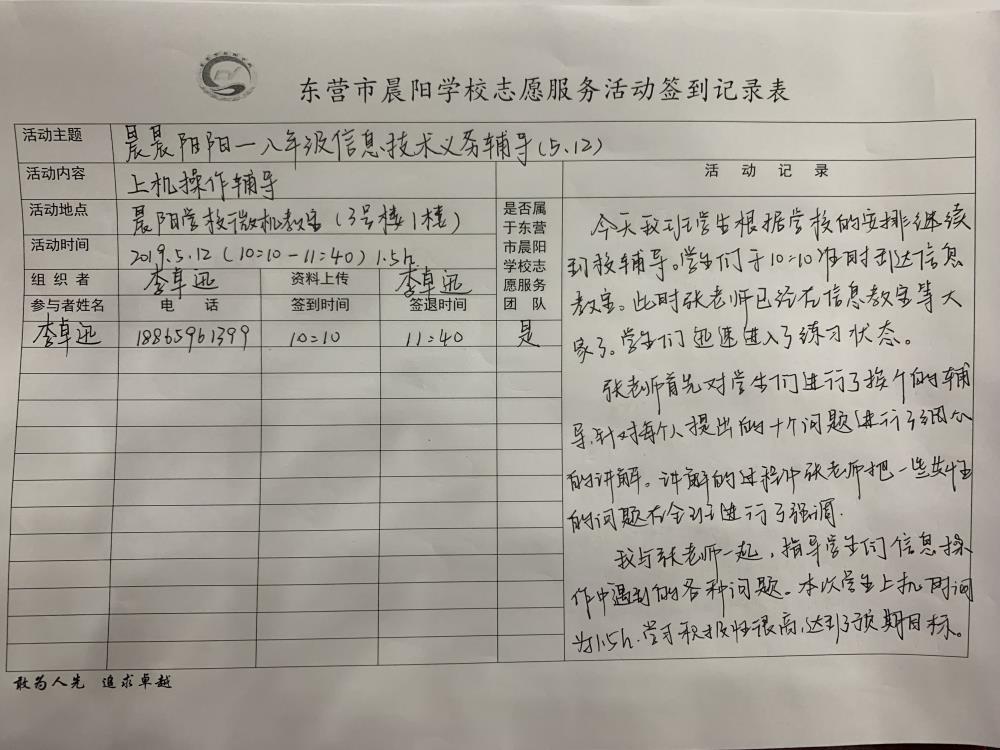 东营市晨阳学校志愿服务活动签到记录表
活动主题 晨晨阳阳一八年级信息技术义务辅导(5.12)
活动内容 上机操作辅导
活动地点 晨阳学校微机教室(3号楼1楼)
活动时间 2019.5.12(10:10-11:40)1.5h
组织者 李卓迅 资料上传 李卓迅
参与者姓名 电话 签到时间 签退时间
是否属
于东营
市晨阳
学校志
愿服务
团队
李卓迅 18865961399 10:10 11:40 是
活动记录
今天我班学生根据学校的安排继续
到校辅导。学生们于10:10准时到达信息
教室。此时张老师已经在信息教室等大
家了。学生们迅速进入了练习状态。
张老师首先对学生们进行了挨个的辅
导,针对每个人提出的十个问题进行了细心
的讲解。讲解的过程中张老师把一些共性
的问题在全班进行了强调.
我与张老师一起,指导学生们信息操
作中遇到的各种问题。本次学生上机时间
为1.5h.学习积极性很高,达到了预期目标。
敢为人先 追求卓越